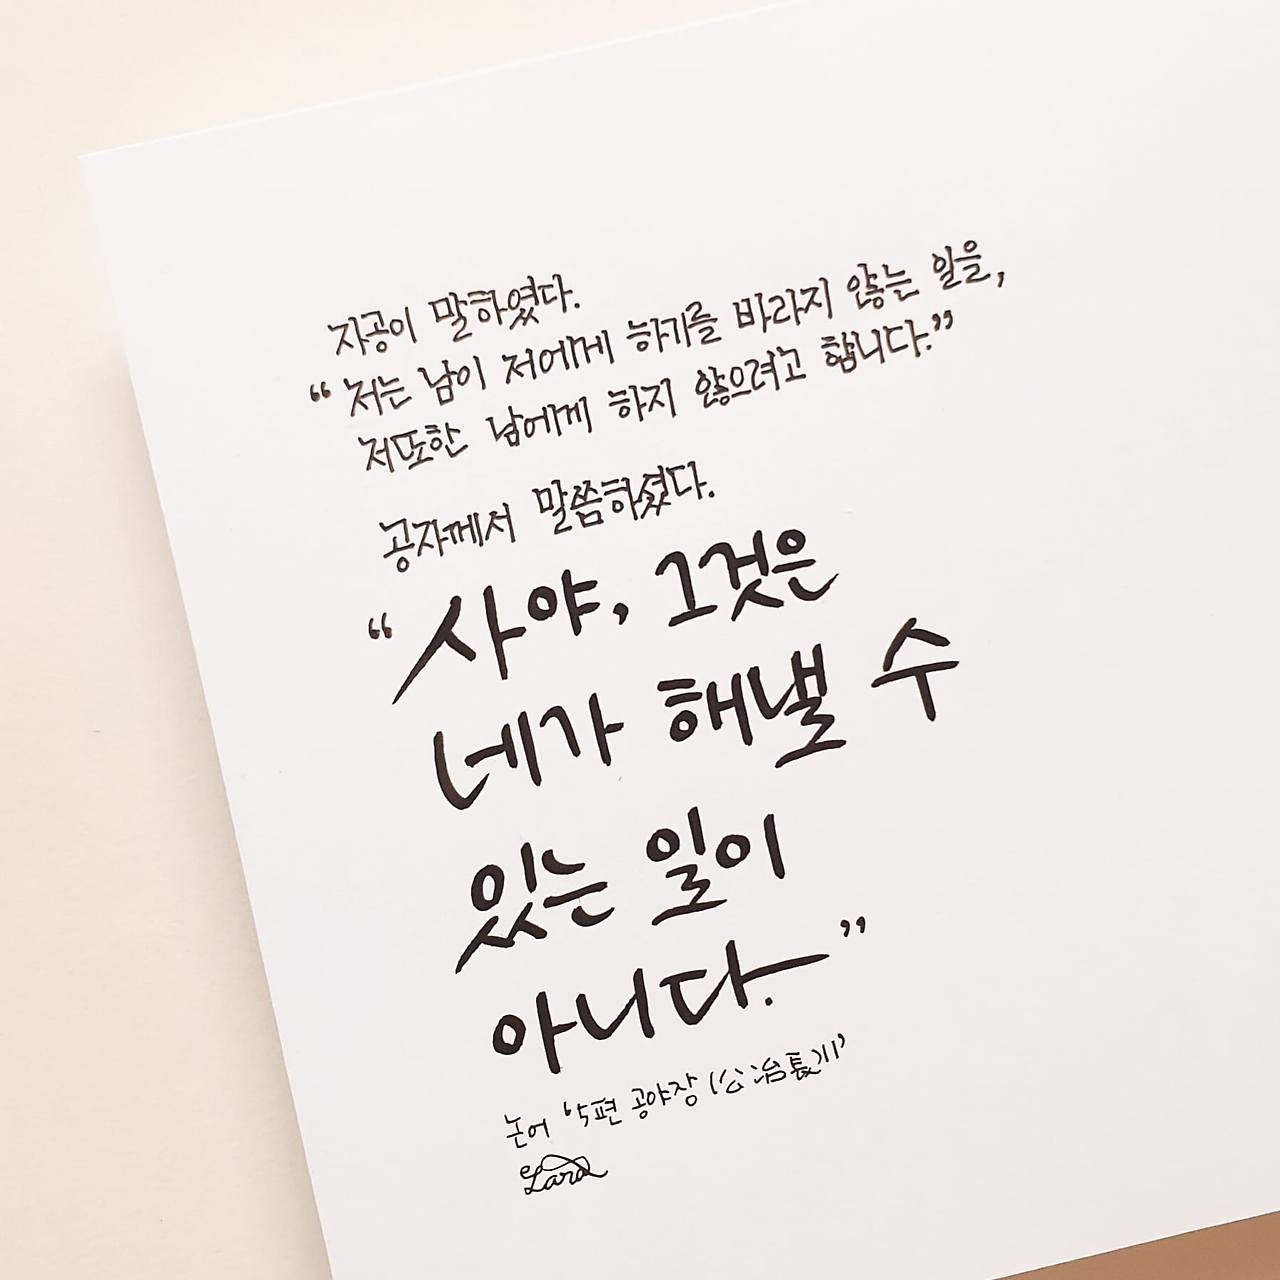 자공이 말하였다.
“ 저는 남이 저에게 하기를 바라지 않는 일을,
저또한 남에게 하지 않으려고 합니다.”
공자께서 말씀하셨다.
“ 사야, 그것은
네가 해낼 수
있는 일이
아니다.”
논어 ‘5편 공야장 (公冶長)11’
Lara